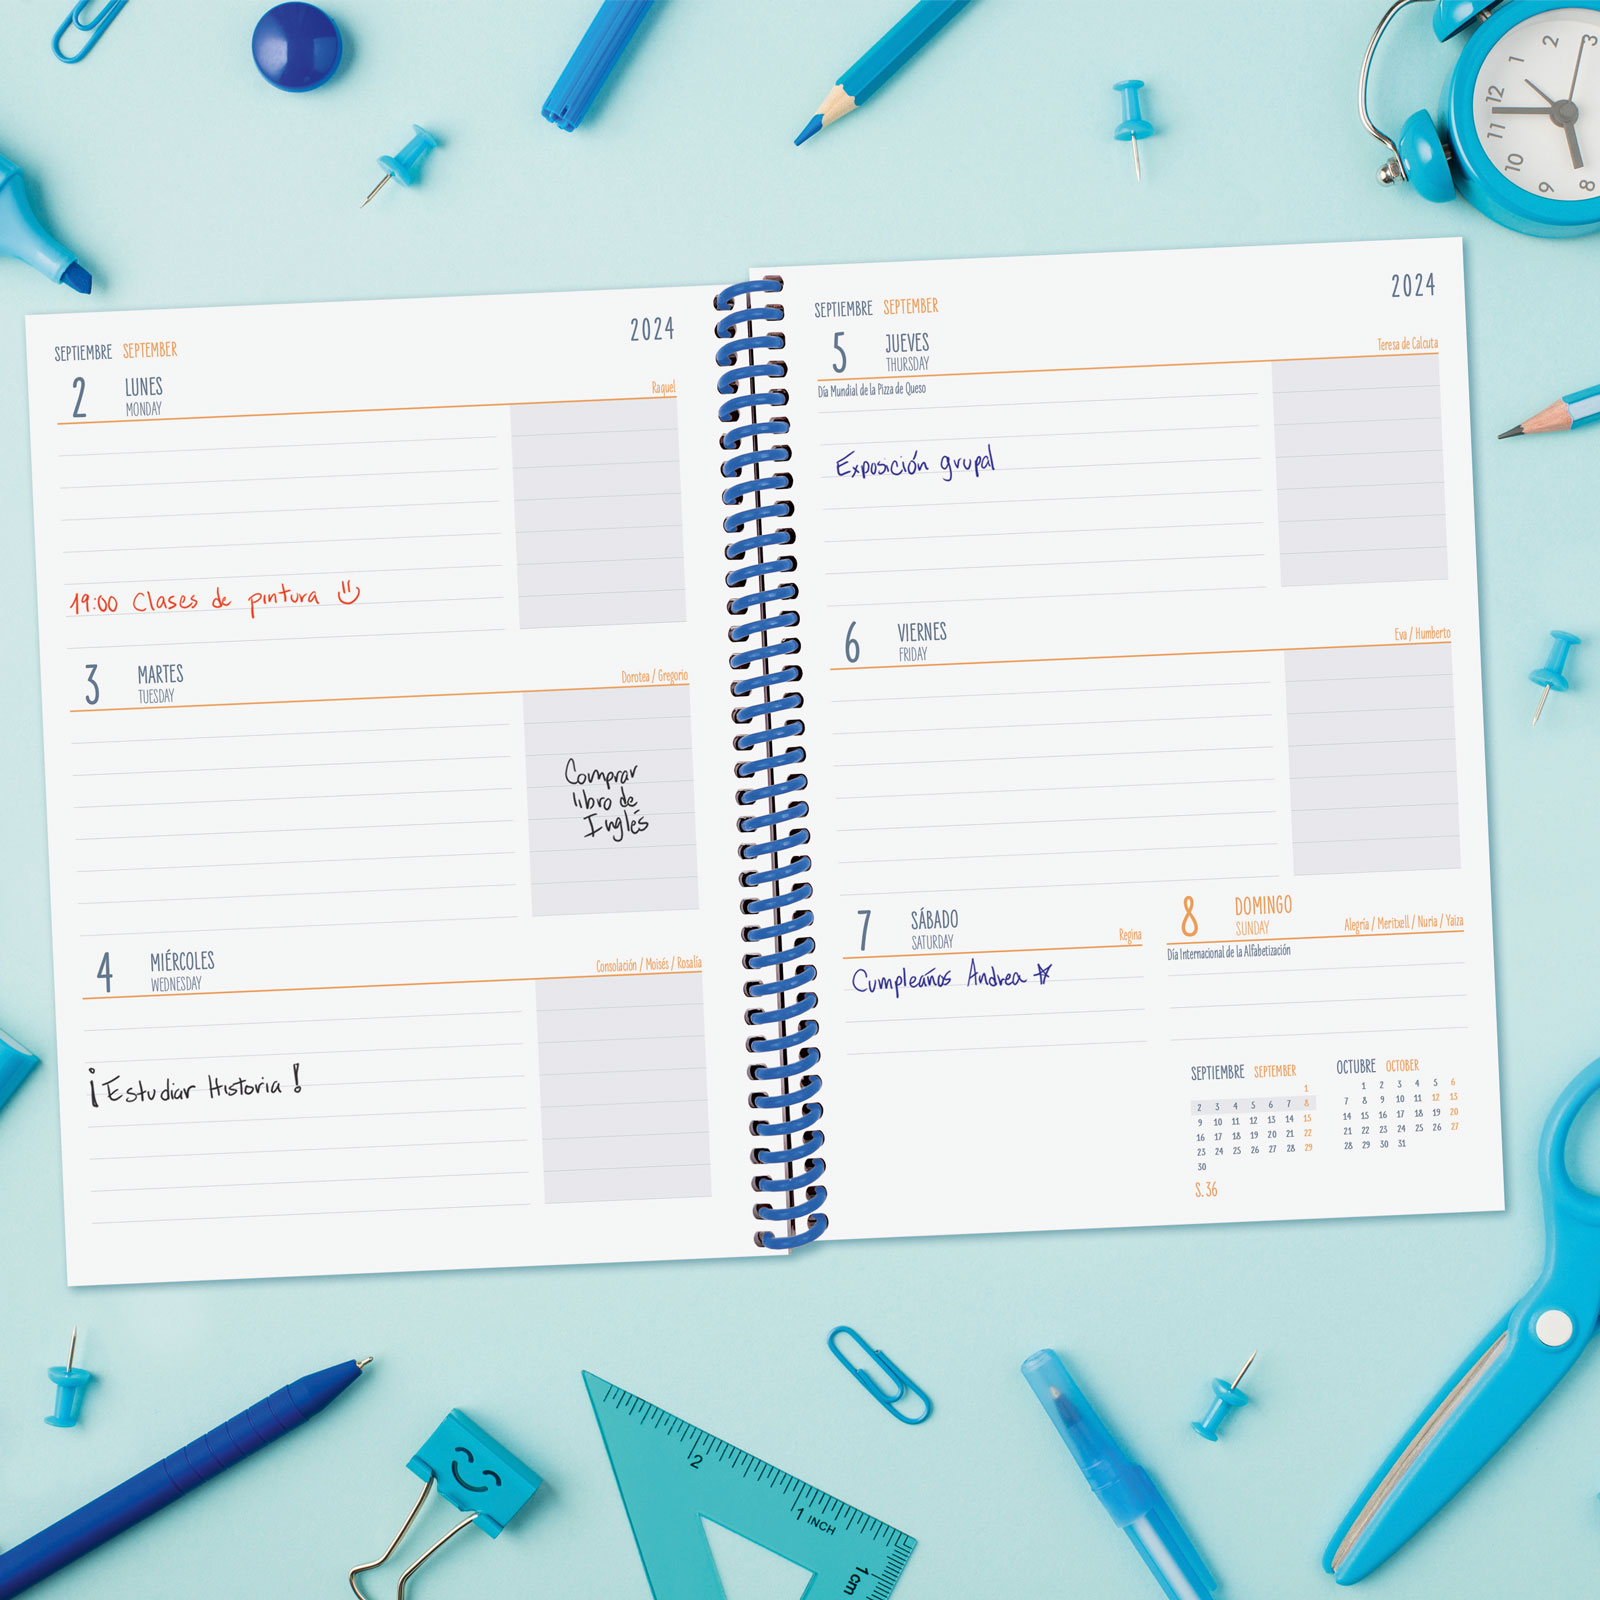 2024
SEPTIEMBRE SEPTEMBER
2 LUNES
MONDAY
Raquel
19:00 Clases de pintura
3 MARTES
TUESDAY
Dorotea / Gregorio
Comprar
libro de
Inglés
4 MIÉRCOLES
WEDNESDAY
Consolación / Moisés / Rosalía
¡Estudiar Historia!
2024
SEPTIEMBRE SEPTEMBER
5 JUEVES
THURSDAY
Teresa de Calcuta
Día Mundial de la Pizza de Queso
Exposición grupal
6 VIERNES
FRIDAY
Eva / Humberto
7 SÁBADO
SATURDAY
Regina
Cumpleaños Andrea
8 DOMINGO
SUNDAY
Alegría / Meritxell / Nuria / Yaiza
Día Internacional de la Alfabetización
SEPTIEMBRE SEPTEMBER
1
2 3 4 5 6 7 8
9 10 11 12 13 14 15
16 17 18 19 20 21 22
23 24 25 26 27 28 29
30
S. 36
OCTUBRE OCTOBER
1 2 3 4 5 6
7 8 9 10 11 12 13
14 15 16 17 18 19 20
21 22 23 24 25 26 27
28 29 30 31
12
1
2
3
11
10
9
8
2
1 INCH
1 cm